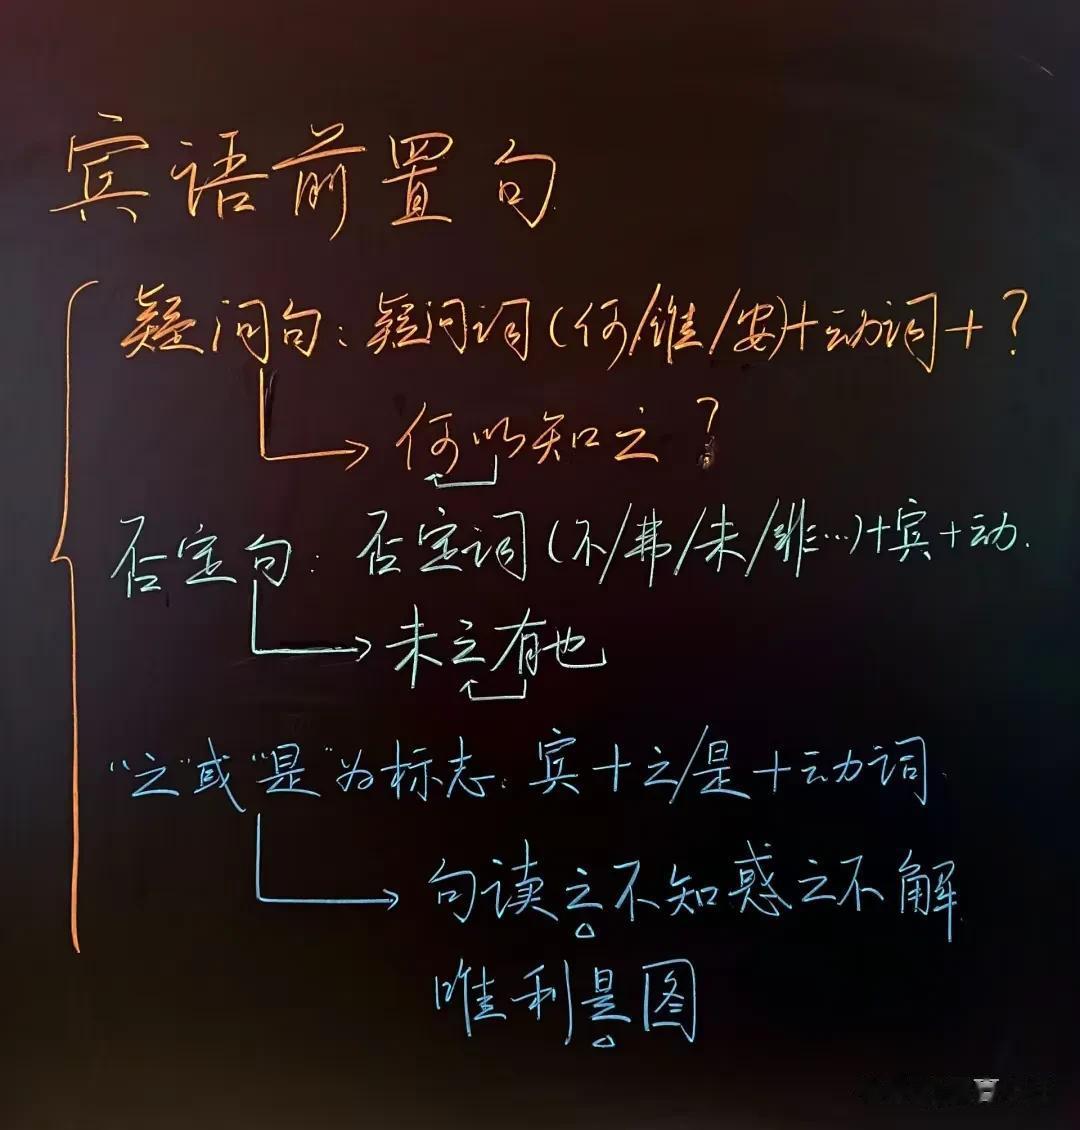 宾语前置句
疑问句：疑问词（何/谁/安）+动词+？
何以知之？
否定句：否定词（不/弗/未/非…）+宾+动.
未之有也
“之”或“是”为标志：宾+之/是+动词.
句读之不知惑之不解
唯利是图